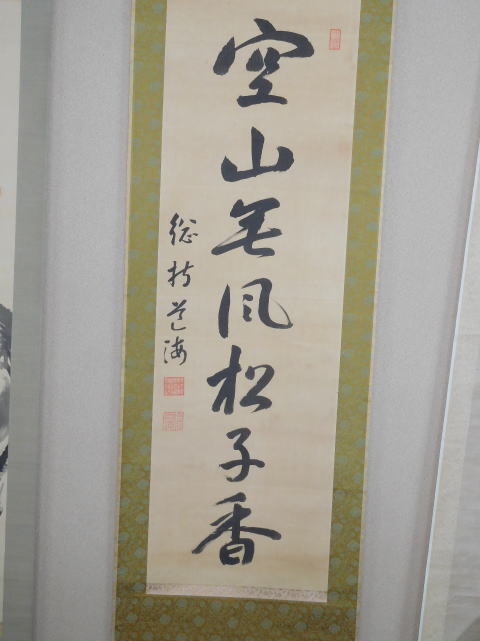 空山无風松子香
総持道海